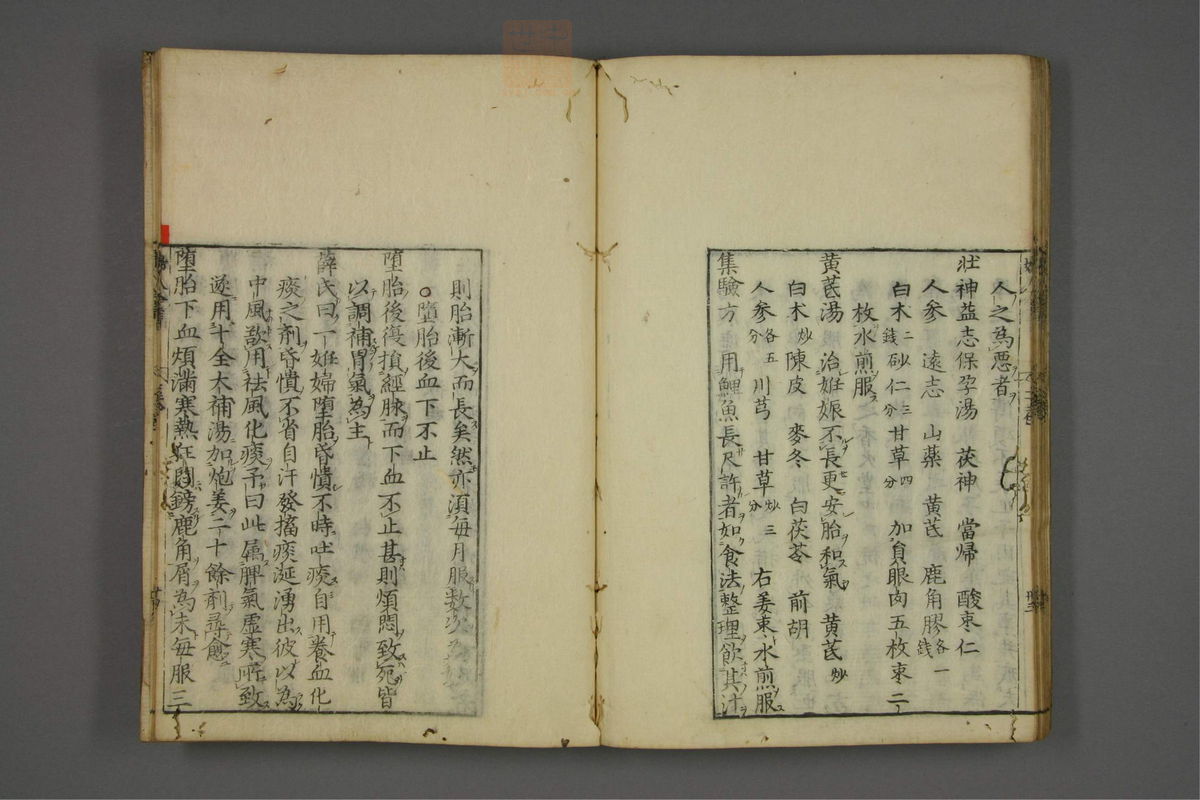 人之為悪者
壮神益志保孕湯 茯神 當帰 酸棗仁
人参 遠志 山藥 黄芪 鹿角膠各一錢
白术二錢 砂仁三分 甘草四分 加負眼肉五枚棗二
枚水煎服
黄芪湯 治姙娠不長更安胎和氣 黄芪炒
白术炒 陳皮 麥冬 白茯苓 前胡
人参各五分 川芎 甘草炒三分 右姜棗水煎服
集驗方 用鯉魚長尺許者如食法整理飲其汁
則胎漸大而長矣然亦湏毎月服数次
○墮胎後血下不止
堕胎後復損經脉而下血不止甚則煩悶致死皆
以調補胃氣為主
薛氏曰一姙婦堕胎昏憒不時吐痰自用養血化
痰之剤昏憒不省自汗發搐痰涎湧出彼以為
中風欲用祛風化痰予曰此属脾氣虚寒所致
遂用十全大補湯加炮姜二十餘剤尋愈
堕胎下血煩滿寒熱狂悶鎊鹿角屑為末毎服三